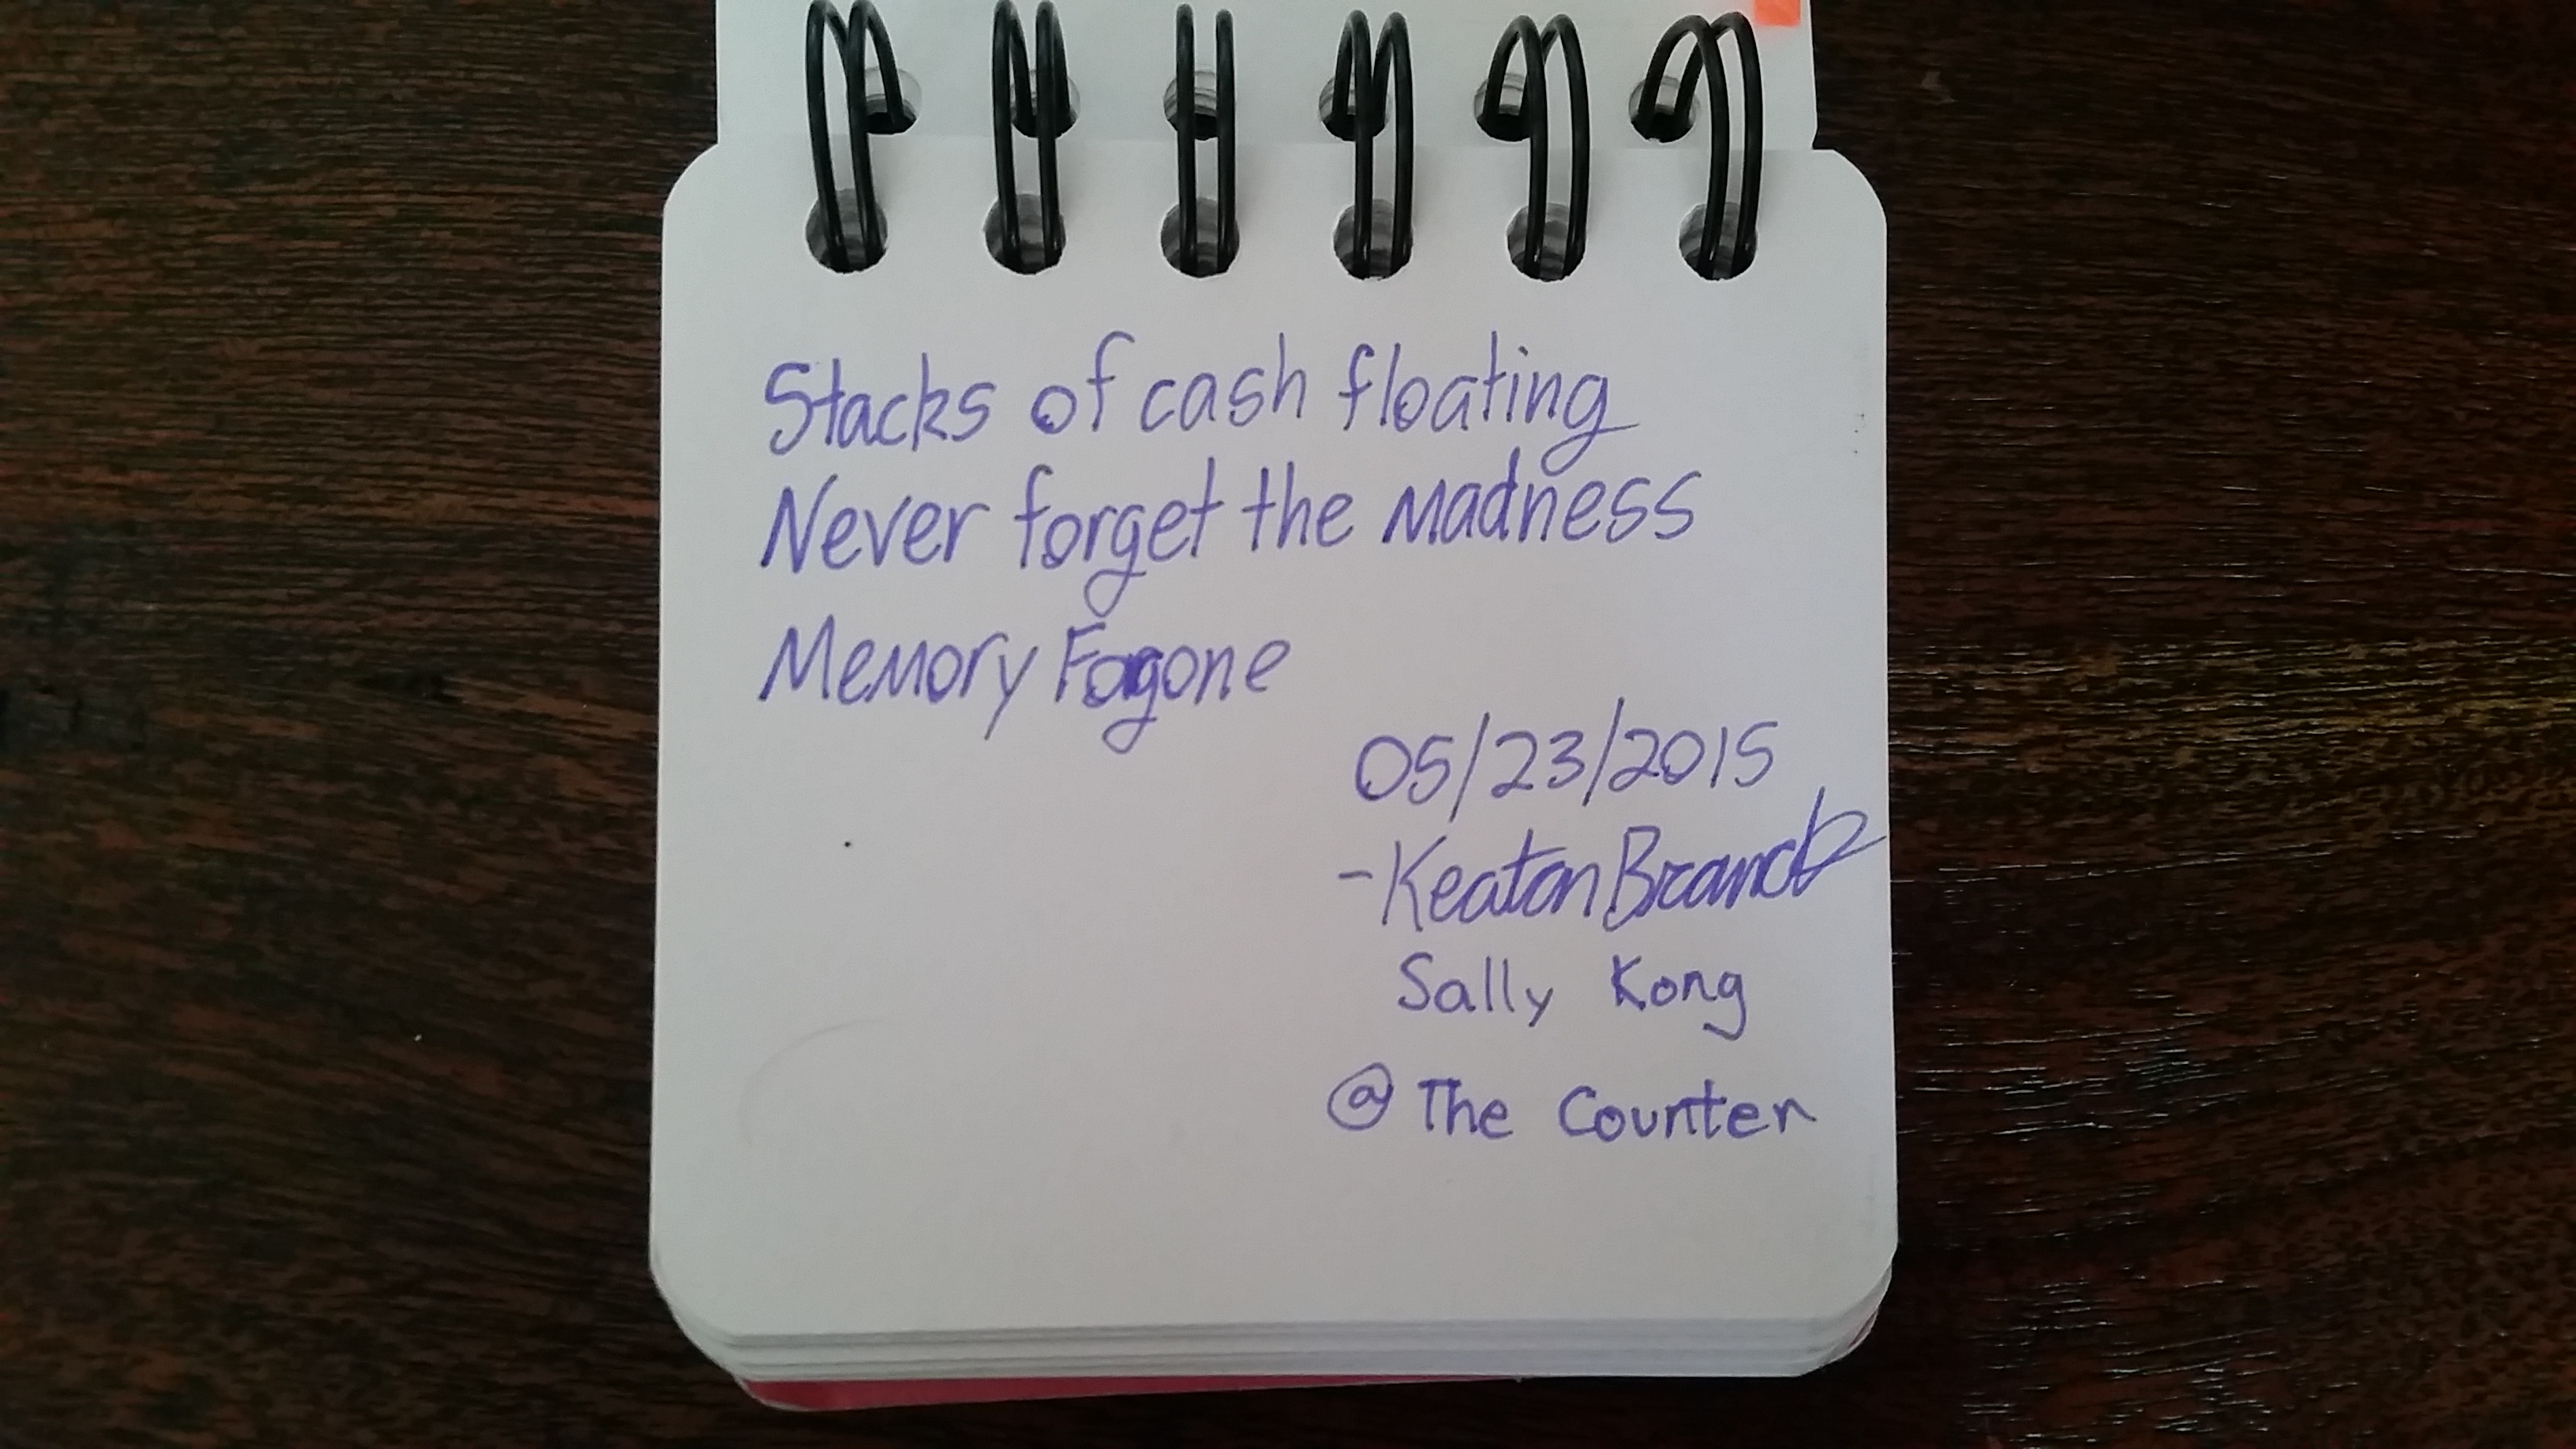 Stacks of cash floating
Never forget the madness
Memory Fagone
05/23/2015
- Keaton Brandt
Sally Kong
@ The Counter